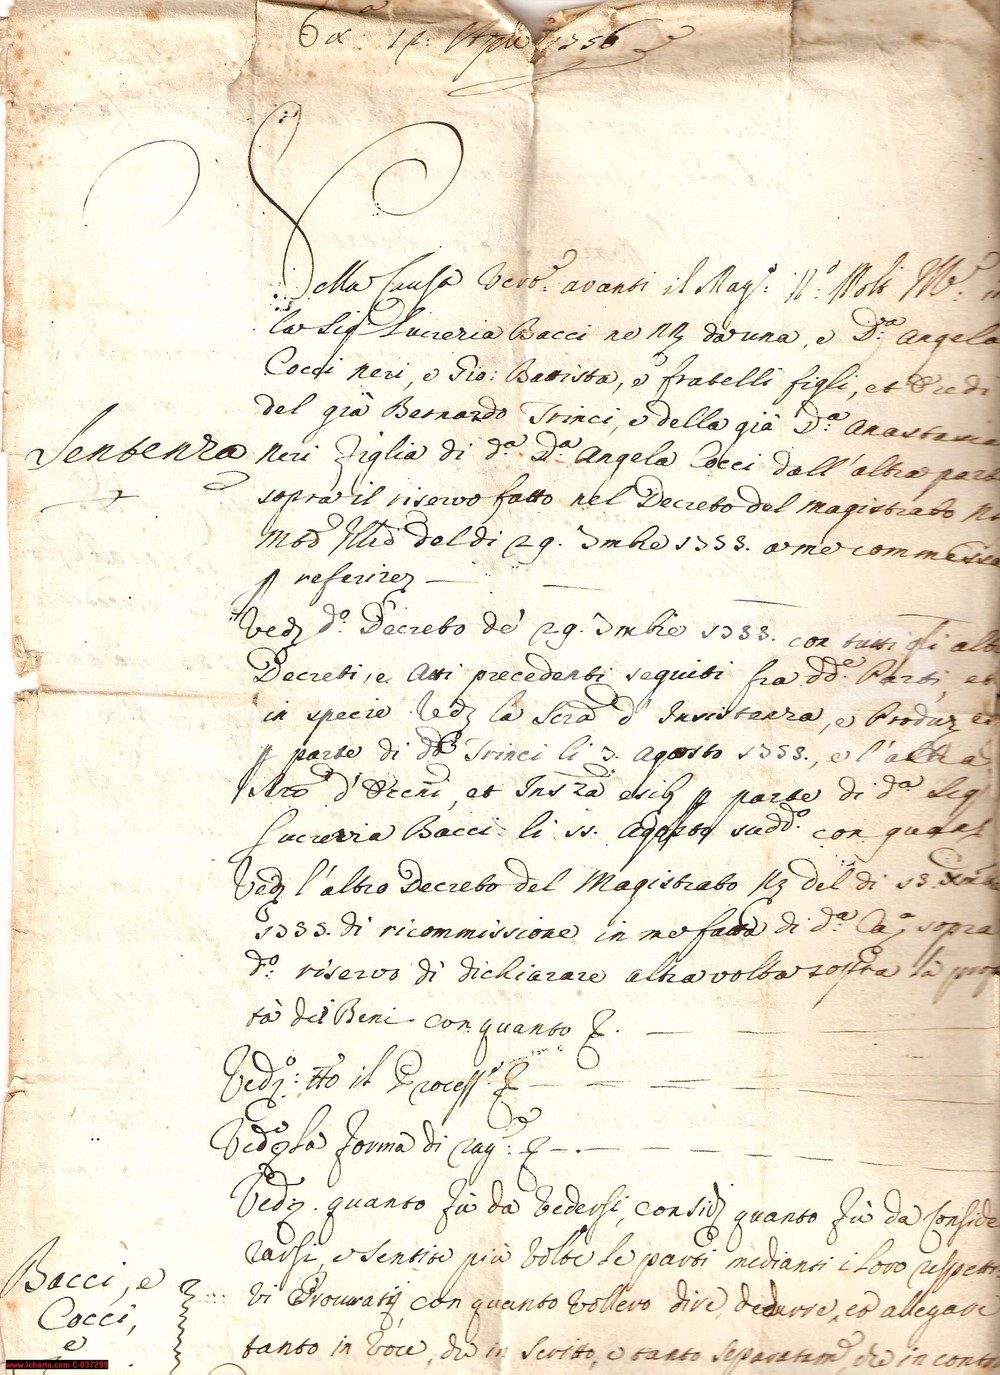 Aple 1756
Della Causa Vert.e avanti il Mag.o N.o Molt M.e
la Sig.a Lucrezia Bacci ne NN da una, e D.a Angela
Cocci neri, e Gio: Battista, e fratelli figli, et Eredi
del già Bernardo Trinci, e della già D.a Anastasia
Sentenza
neri figlia di d.a D.a Angela Cocci dall'altra parte
sopra il riservo fatto nel Decreto del Magistrato
del di 29. Xmbre 1755. a me commessa
p referirez
Vedz d.o Decreto de' 29. Xmbre 1755. con tutti gli altri
Decreti, e Atti precedenti seguiti fra dd.e Parti, et
in specie Vedz la Scra d' Insistenza, e Produz ed
p parte di dd.i Trinci li 7. Agosto 1755., e l'altra
Scra d' Ecc.ni, et Insza esib p parte di d.a Sig
Lucrezia Bacci li 11. Agosto sudd.o con quant
Vedz l'altro Decreto del Magistrato NN del di 15.
1755. di ricommissione in me fatta di d.a Ca.a sopra
d.o riservo di dichiarare altra volta sopra la prop
tà dei Beni con quanto
Vedz: tto il Process.o
Vedz la forma di rag.e
Vedz. quanto fù da Vedersi, considz quanto fù da Conside
rarsi, e Sentite più Volte le parti medianti i Loro respetti
Bacci, e
Cocci,
e
vi Prouratj con quanto Vollero dire, dedurre, et allegare
tanto in Voce, che in Scritto, e tanto Separatam.e, che in contr
www.icharta.com C-037299